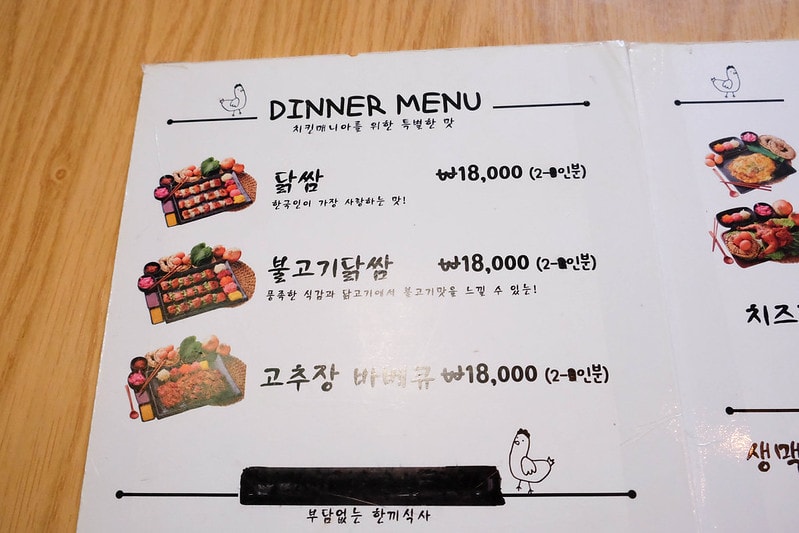 DINNER MENU
치킨매니아를 위한 특별한 맛
닭쌈 ₩18,000 (2-인분)
한국인이 가장 사랑하는 맛!
불고기닭쌈 ₩18,000 (2-인분)
풍족한 식감과 닭고기에서 불고기맛을 느낄 수 있는!
고추장 바베큐 ₩18,000 (2-인분)
부담없는 한끼식사
치즈
생맥